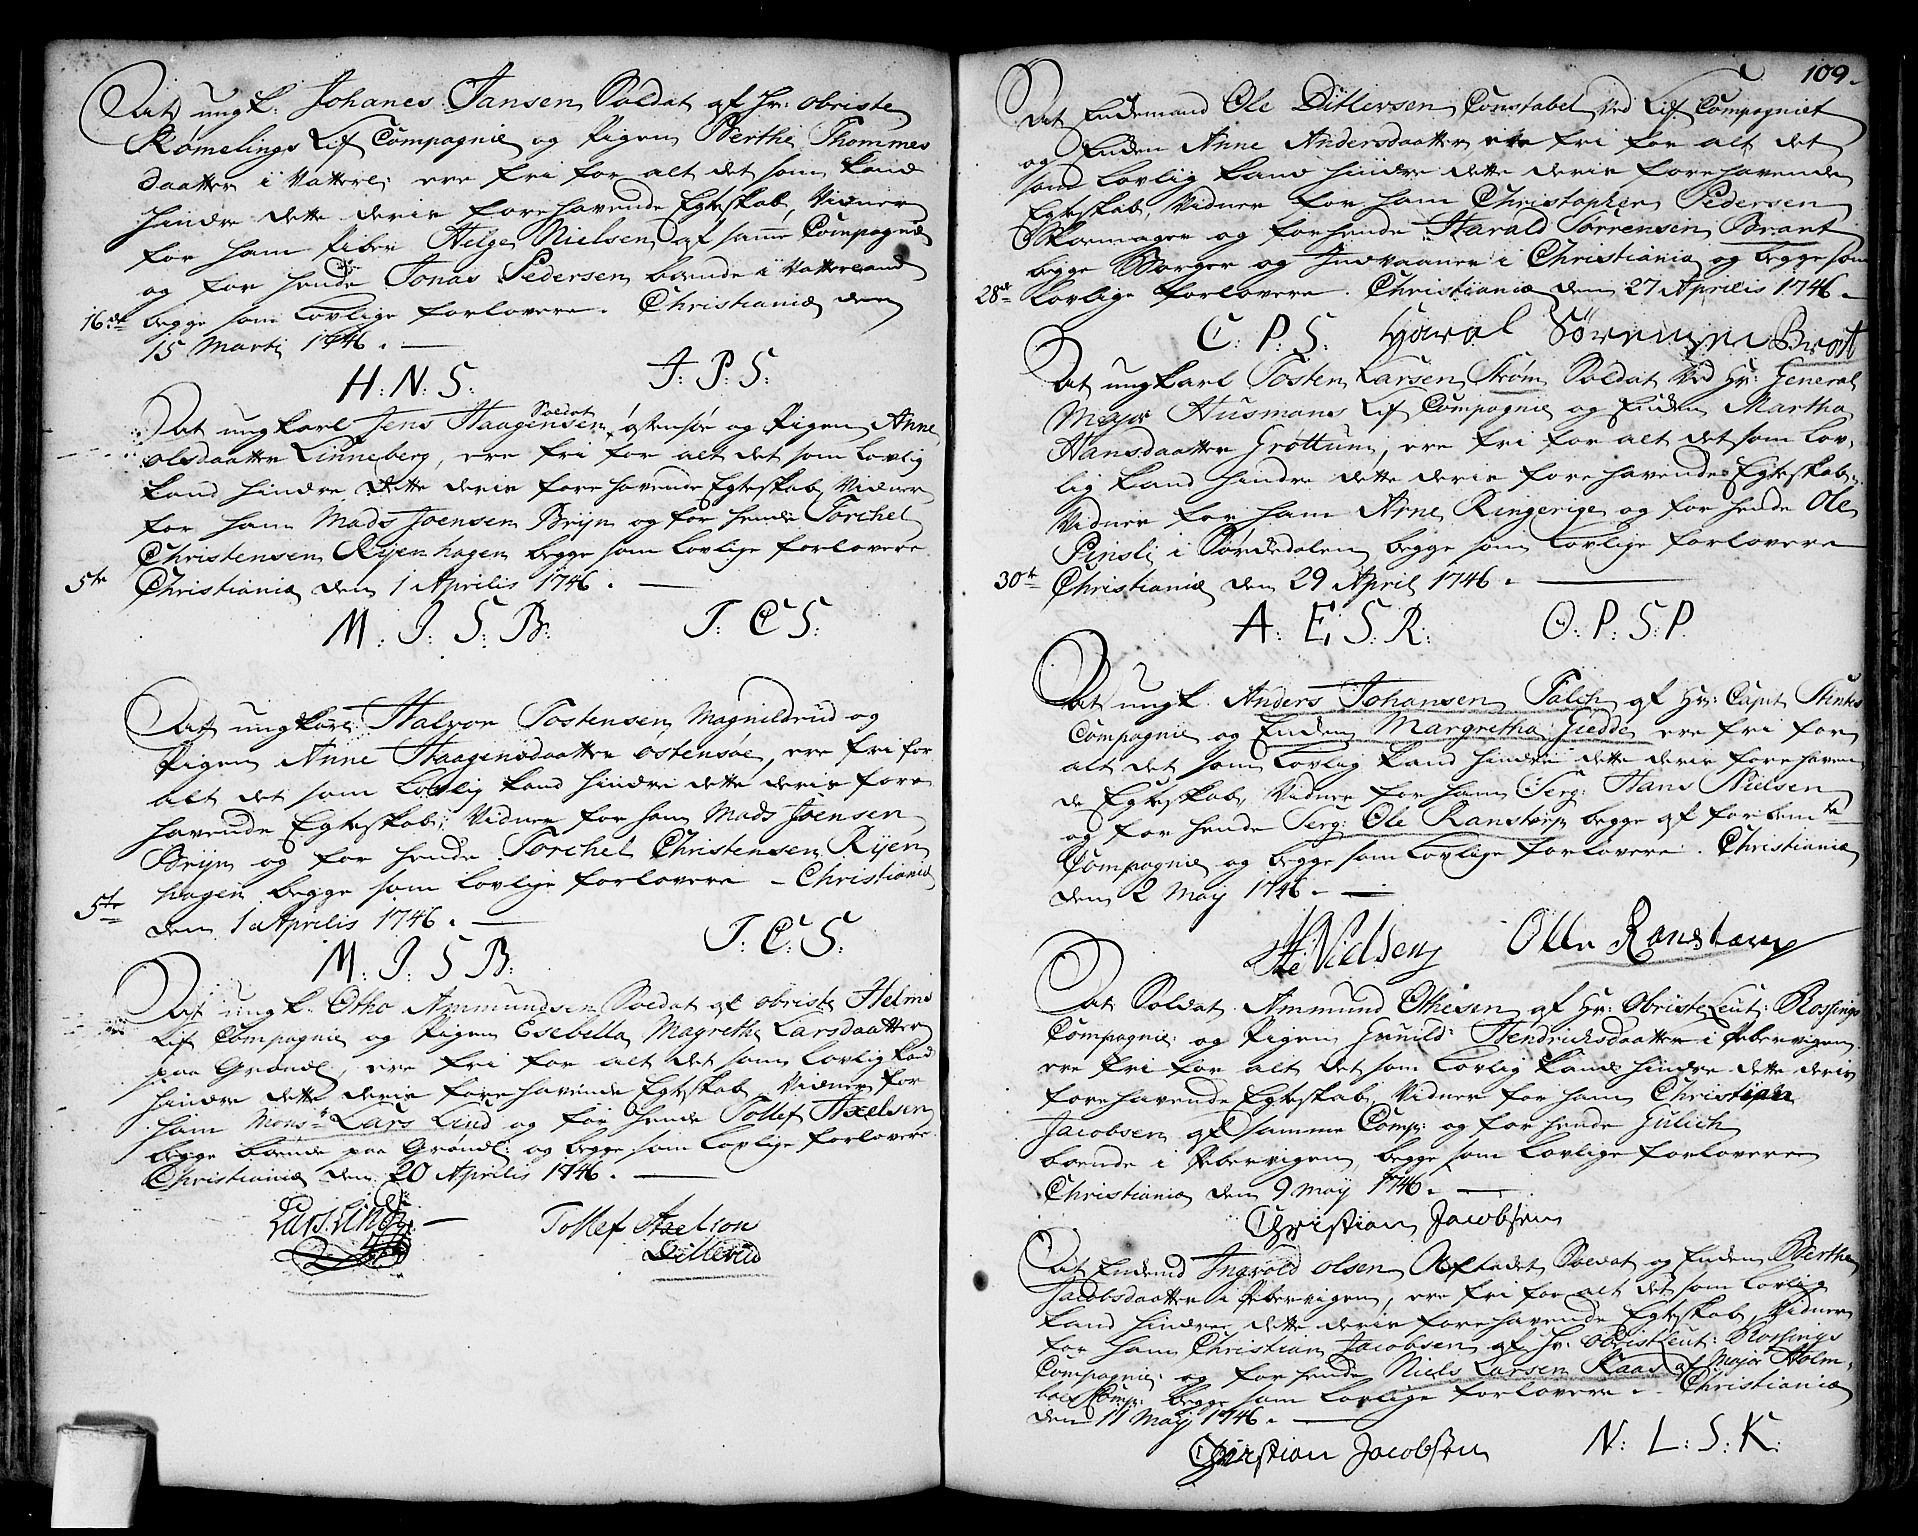 At ungk: Johanes Jansen Soldat af Hr: Obriste
Rømelings Lif Compagnie og Pigen Berthe Thommes
daatter i Vatterl: ere fri for alt det som kand
hindre dette deris forehavende Egteskab, Vidner
for ham Piber Helge Nielsen af samme Compagnie
og for hende Jonas Pedersen boende i Vatterland
16de begge som Lovlige forlovere. Christiania den
15 Marti 1746.
H: N: S: J: P: S:
At ungkarl Jens Haagensen Soldat Østensøe og Pigen Anne
olsdaatter Linneberg, ere fri for alt det som lovlig
kand hindre dette deris forehavende Egteskab, Vidner
for ham Mads Joensen Bryn og for hende Torchel
Christensen Ryenhagen begge som Lovlige forlovere
5te Christiania den 1 Aprilis 1746.
M: J: S: B: T: C: S:
At ungkarl Halvor Tostensen Magnildrud og
Pigen Anne Haagensdaatter ostensøe, ere fri for
alt det som Lovlig kand hindre dette deris fore
havende Egteskab, Vidner for ham Mads Joensen
Bryn og for hende Torchel Christensen Ryen
hagen begge som lovlige forlovere - Christiania
5te den 1 Aprilis 1746.
M: J: S: B: T: C: S:
At ungk. Otho Ammundsen Soldat af obriste Helms
Lif Compagnie og Pigen Esebella Magrethe Larsdaatter
paa Grøndl, ere fri for alt det som lovlig kand
hindre dette deris forehavende Egteskab, Vidner for
ham Monsr Lars Lind og for hende Tollef Axelsen
begge boende paa Grøndl: og begge som lovlige forlovere
Christiania den 20 Aprilis 1746.
Lars Lind Tollef Axelson
109.
At Enckemand Ole Ditlevsen Constabel ved Lif Compagniet
og Encken Anne Andersdaatter ere fri for alt det
som lovlig kand hindre dette deris forehavende
Egteskab, Vidner for ham Christopher Pedersen
Skoemager og for hende Harald Sørrensen Brant
begge Borger og Indvaaner i Christiania og begge som
28de Lovlige forlovere. Christiania den 27 Aprilis 1746.
C: P: S. Haral Sørensen Brat
At ungkarl Tosten Larsen Strøm Soldat ved Hr: General
Major Husmans Lif Compagnie og Encken Martha
Hansdaatter Grøttum, ere fri for alt det som lov-
lig kand hindre dette deris forehavende Egteskab,
Vidner for ham Arne Ringerige og for hende Ole
i Sørkedalen begge som Lovlige forlovere
30te Christiania den 29 April 1746.
A: E: S: R: O: P: S: P.
At ungk. Anders Johansen Falch af Hr: Capit
Compagnie og Encken Margretha Giedde ere fri for
alt det som Lovlig kand hindre dette deris forehaven
de Egteskab, Vidner for ham Serg: Hans Nielsen
og for hende Serg: Ole Ranstorp begge af forbemte
Compagnie og begge som Lovlige forlovere. Christiania
den 2 May 1746.
H Nielsen Olle Ranstorp
At Soldat Ammund Othesen af Hr: Obriste Leut: Rossings
Compagnie: og Pigen Gunild Hendrichsdaatter i Pebervigen
ere fri for alt det som Lovlig kand hindre dette deris
forehavende Egteskab, Vidner for ham Christian
Jacobsen af samme Comp: og for hende Gulich
boende i Pebervigen, begge som Lovlige forlovere
Christiania den 9 May 1746.
Christian Jacobsen
At Enckemd Ingvold olsen Aftadet Soldat og Encken Berthe
Jacobsdaatter i Pebervigen, ere fri for alt det som Lovlig
kand hindre dette deris forehavende Egteskab, Vidner
for ham Christian Jacobsen af Hr: obristLeut: Rossings
Compagnie: og for hende Niels Larsen Kaas af Major Holm-
boes Comp: begge som Lovlige forlovere. Christiania
den 11 May 1746.
Christian Jacobsen N: L: S: K: